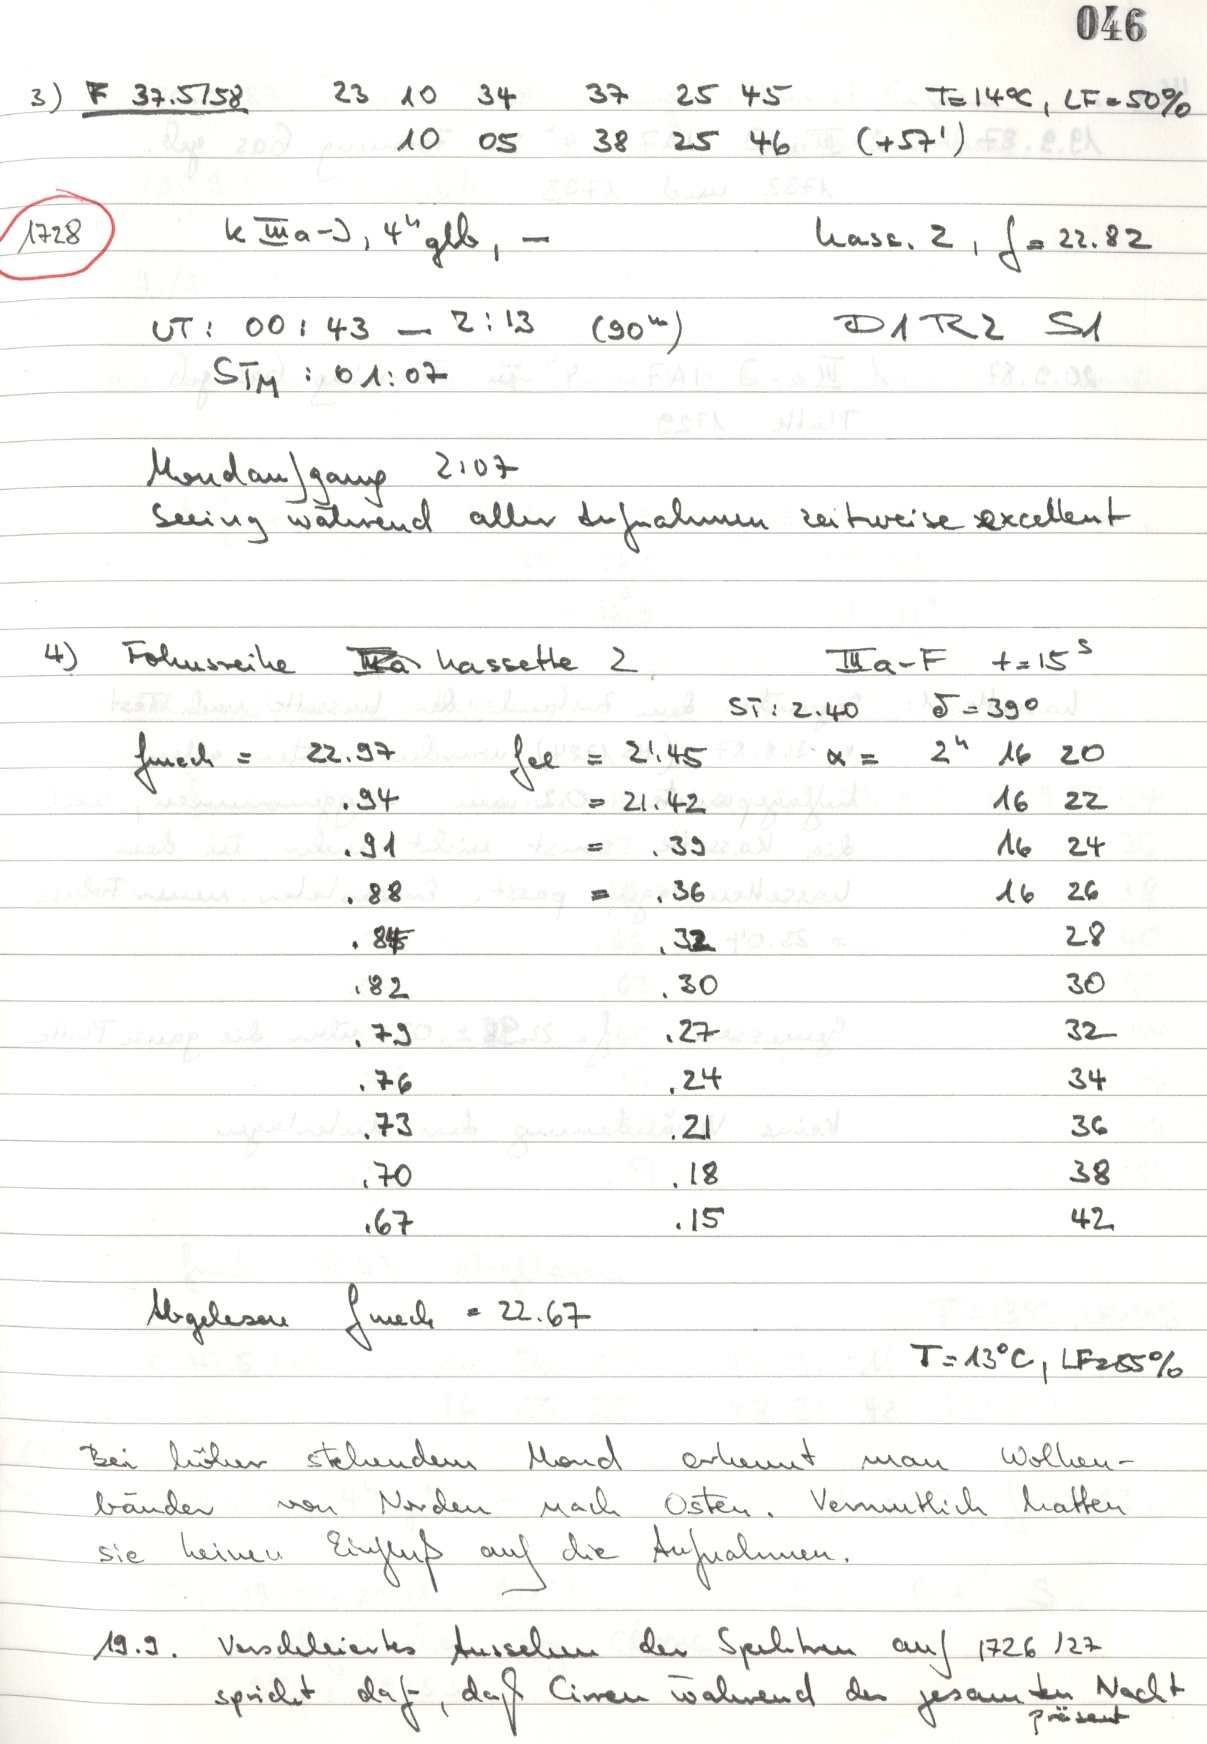 046
3) F 37.5/58 23 10 34 37 25 45 T=14°C, LF=50%
10 05 38 25 46 (+57')
1728 k IIIa-J, 4h glb, – Kass. 2, f=22.82
UT: 00:43 – 2:13 (90m) D1 R2 S1
STM: 01:07
Mondaufgang 2:07
Seeing während aller Aufnahmen zeitweise excellent
4) Fokusreihe Kassette 2 IIIa-F t=15s
ST: 2.40 δ=39°
fmech = 22.97 fel = 21.45 α = 2h 16 20
.94 = 21.42 16 22
.91 = .39 16 24
.88 = .36 16 26
.85 .32 28
.82 .30 30
.79 .27 32
.76 .24 34
.73 .21 36
.70 .18 38
.67 .15 42
Abgelesen fmech = 22.67
T=13°C, LF=55%
Bei höher stehendem Mond erkennt man Wolken-
bänder von Norden nach Osten. Vermutlich hatten
sie keinen Einfluß auf die Aufnahmen.
19.9. Verschleiertes Aussehen der Spektren auf 1726/27
spricht daf., daß Cirren während der gesamten Nacht
präsent